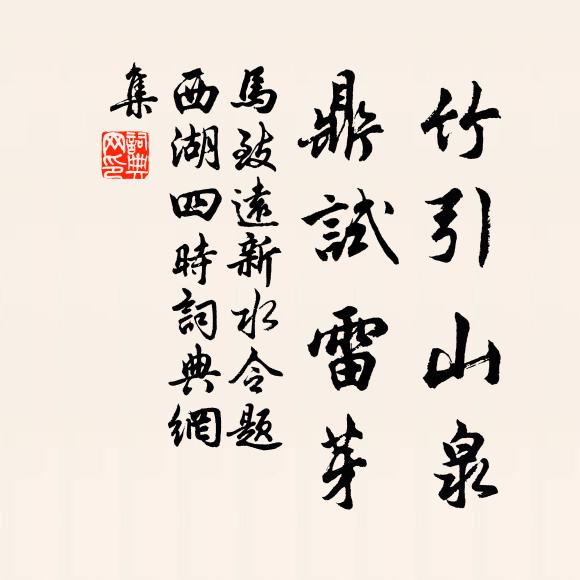 竹引山泉
鼎試雷芽
馬致遠新水令題
西湖四時詞典網
集
詞典網印